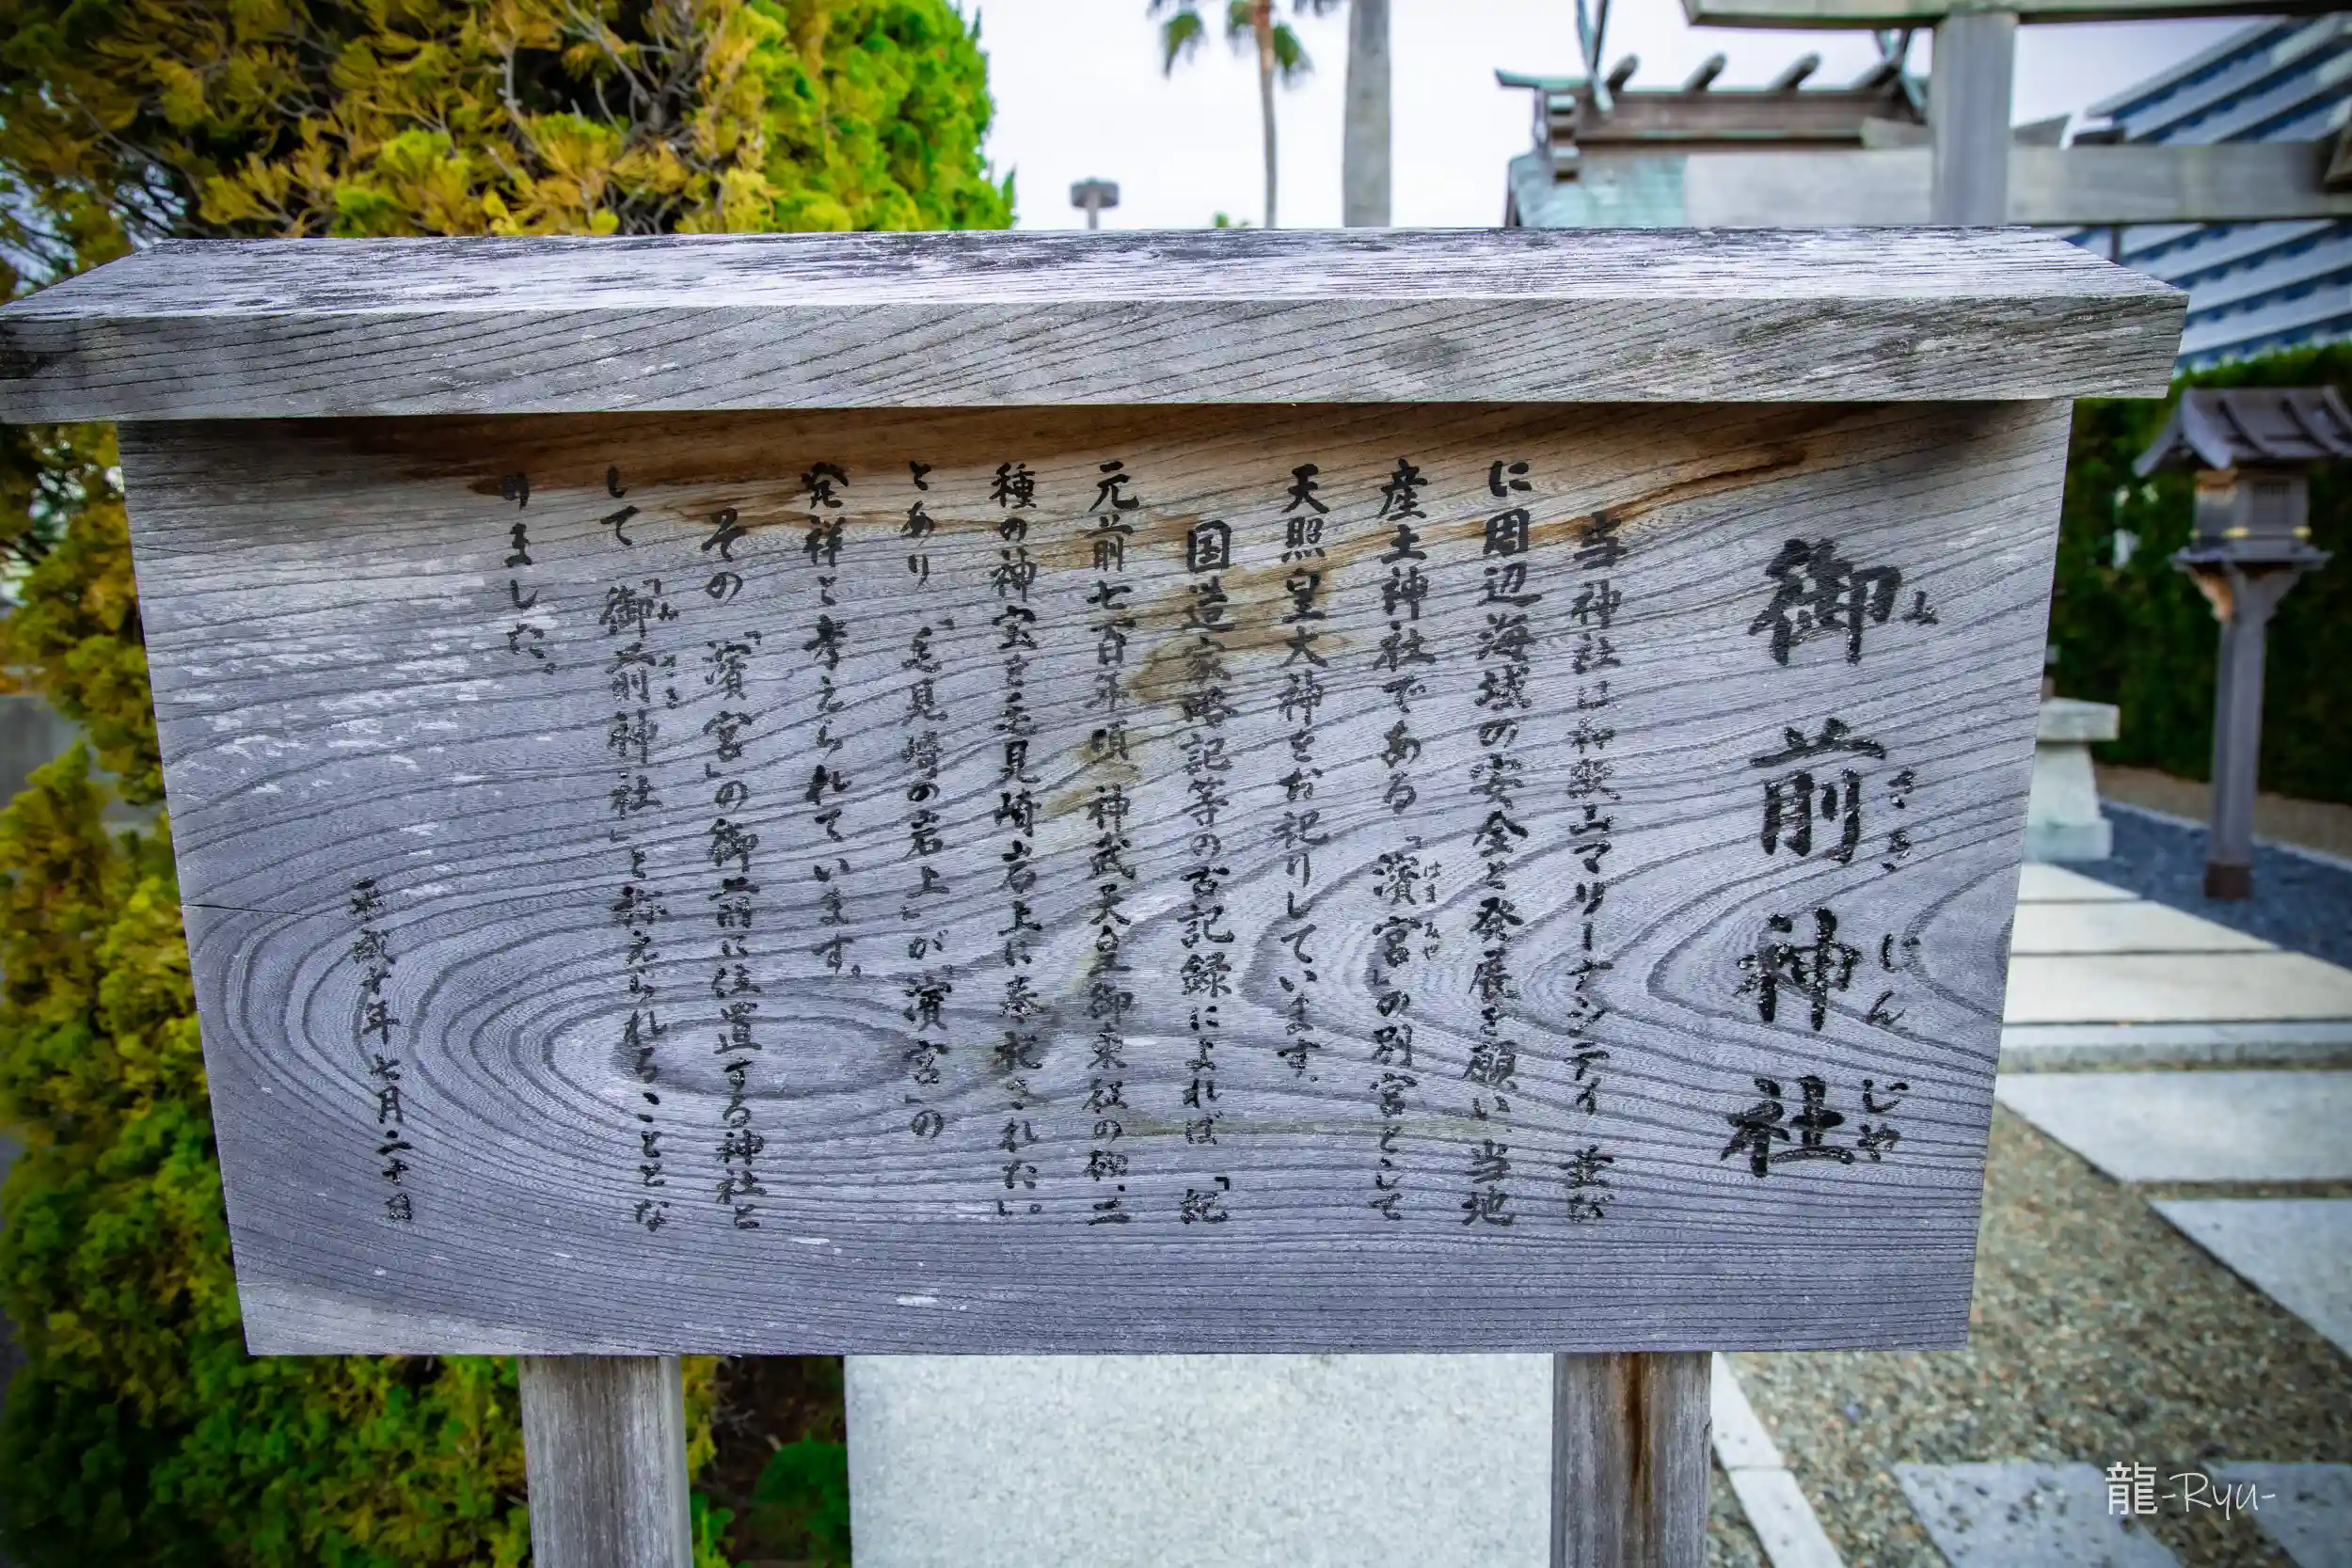 御前神社
みさきじんじゃ
当神社は和歌山マリーナシティ並び
に周辺海域の安全と発展を願い、当地
産土神社である「濱宮」の別宮として
はまみや
天照皇大神をお祀りしています。
国造家略記等の古記録によれば「紀
元前七百年頃、神武天皇御東征の砌、二
種の神宝を毛見崎岩上に奉祀された」。
とあり、「毛見崎の岩上」が「濱宮」の
発祥と考えられています。
その「濱宮」の御前に位置する神社と
して「御前神社」と称えられることとな
みさき
りました。
平成十年七月二十日
龍-Ryu-